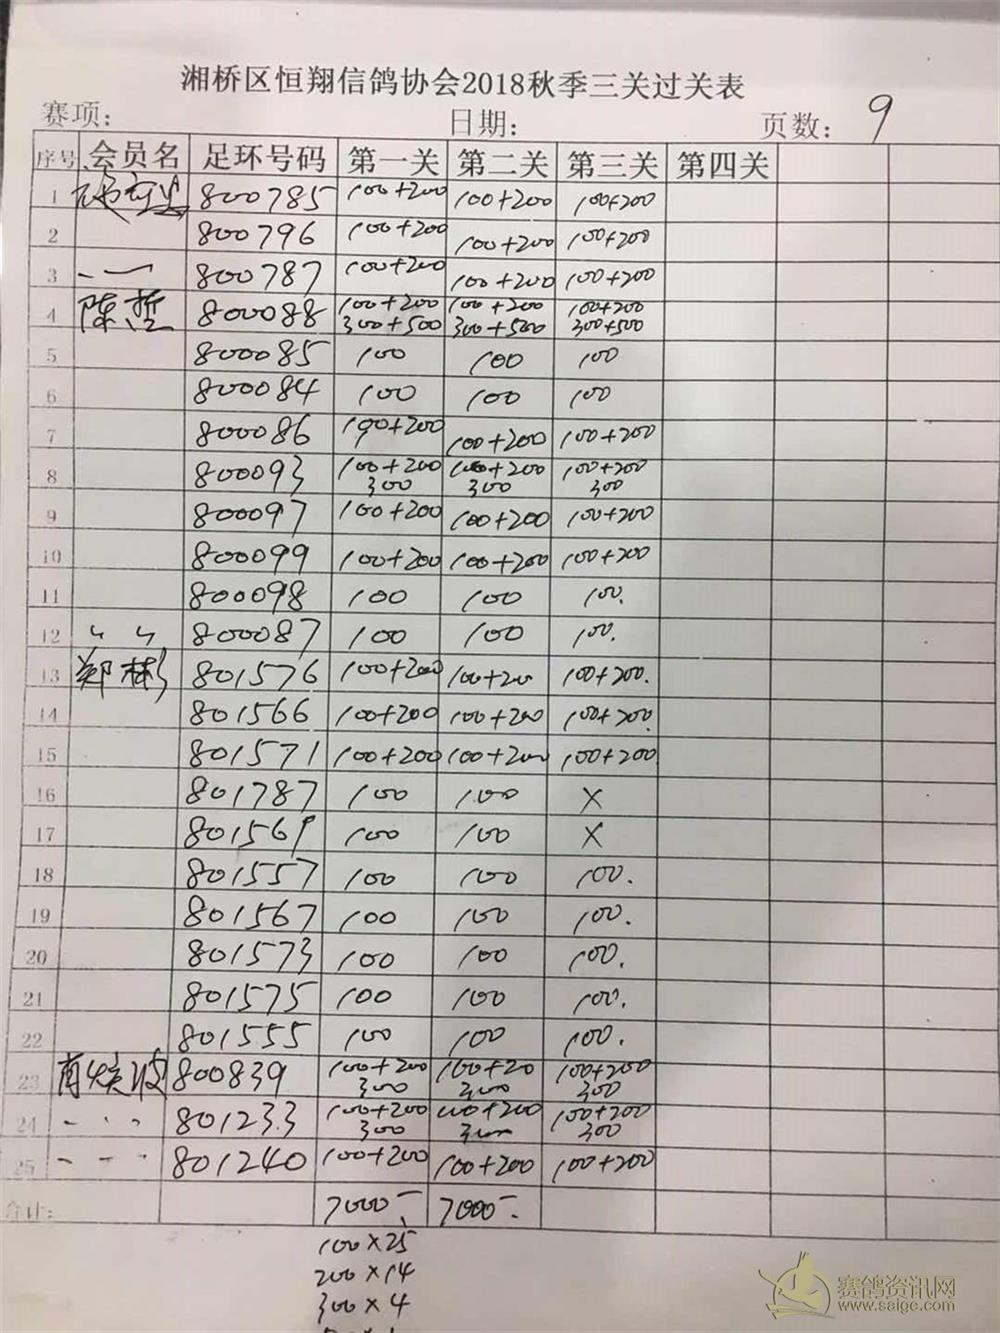 湘桥区恒翔信鸽协会2018秋季三关过关表
赛项: 日期: 页数: 9
序号 会员名 足环号码 第一关 第二关 第三关 第四关
1 800785 100+200 100+200 100+200
2 800796 100+200 100+200 100+200
3 800787 100+200 100+200 100+200
4 陈哲 800088 100+200 100+200 100+200
300+500 300+500 300+500
5 800085 100 100 100
6 800084 100 100 100
7 800086 100+200 100+200 100+200
8 800093 100+200 100+200 100+200
300 300 300
9 800097 100+200 100+200 100+200
10 800099 100+200 100+200 100+200
11 800098 100 100 100.
12 〃 〃 800087 100 100 100.
13 郑彬 801576 100+200 100+200 100+200.
14 801566 100+200 100+200 100+200.
15 801571 100+200 100+200 100+200.
16 801787 100 100 X
17 801569 100 100 X
18 801557 100 100 100.
19 801567 100 100 100.
20 801573 100 100 100.
21 801575 100 100 100.
22 801555 100 100 100.
23 肖焕波 800839 100+200 100+20 100+200
300 300 300
24 801233 100+200 100+200 100+200
300 300 300
25 801240 100+200 100+200 100+200
合计: 7000- 7000-.
100×25
200×14
300×4
赛鸽资讯网
www.saige.com